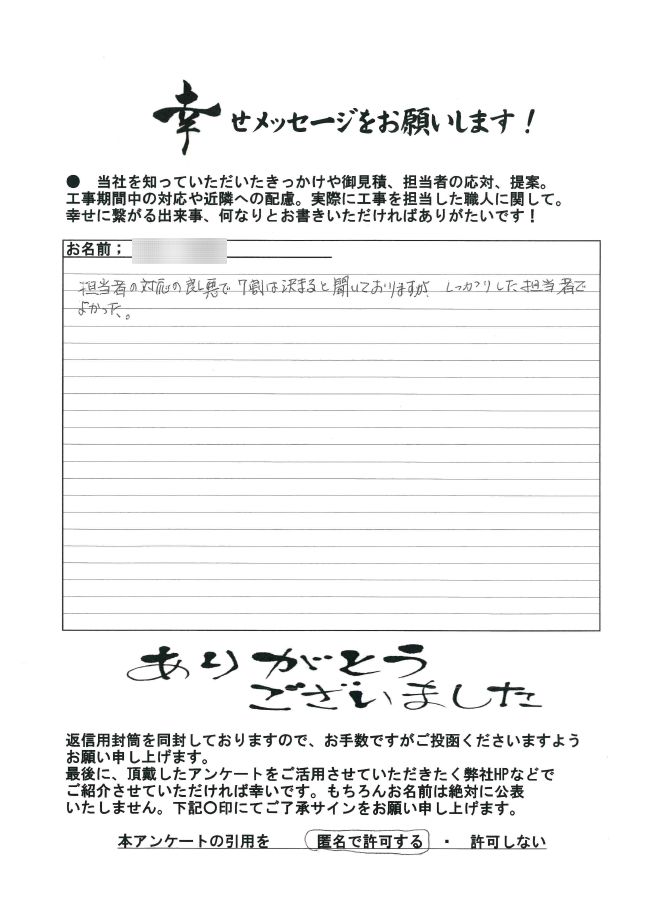 幸せメッセージをお願いします！
● 当社を知っていただいたきっかけや御見積、担当者の応対、提案。
工事期間中の対応や近隣への配慮。実際に工事を担当した職人に関して。
幸せに繋がる出来事、何なりとお書きいただければありがたいです！
お名前；
担当者の対応の良し悪で7割は決まると聞いておりますが、しっかりした担当者で
よかった。
ありがとう
ございました
返信用封筒を同封しておりますので、お手数ですがご投函くださいますよう
お願い申し上げます。
最後に、頂戴したアンケートをご活用させていただきたく弊社HPなどで
ご紹介させていただければ幸いです。もちろんお名前は絶対に公表
いたしません。下記〇印にてご了承サインをお願い申し上げます。
本アンケートの引用を 匿名で許可する ・ 許可しない